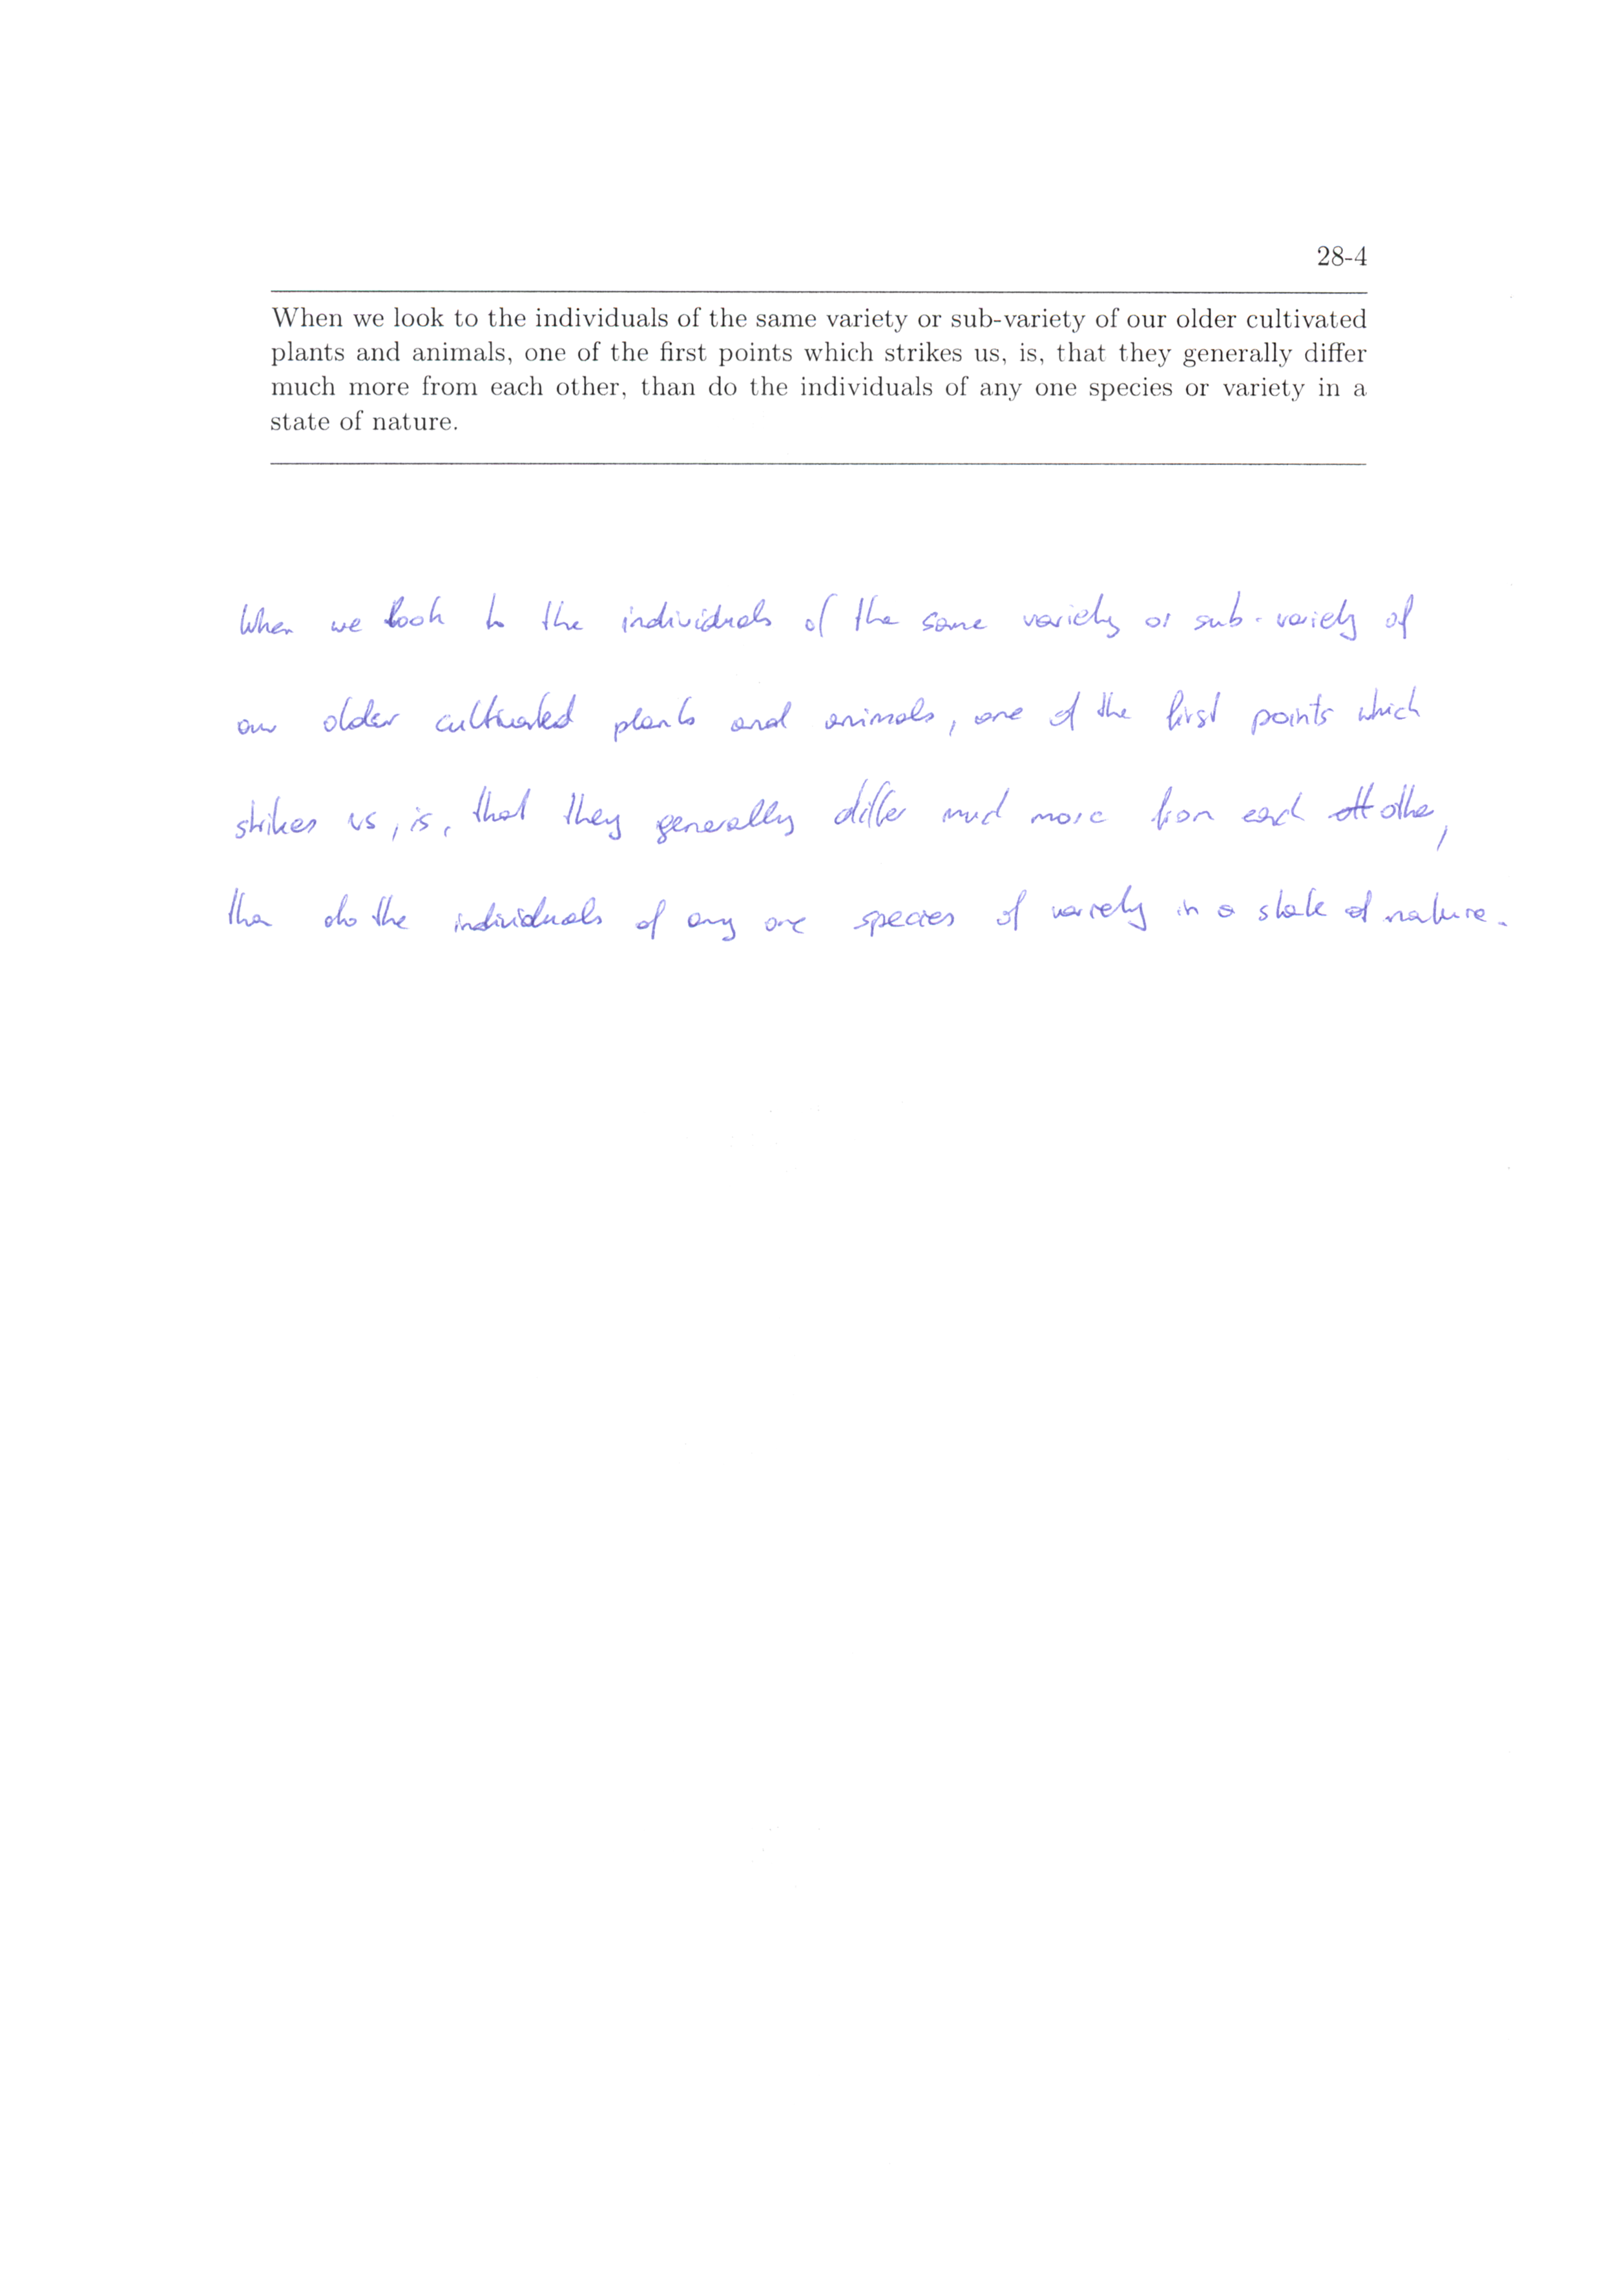 28-4
When we look to the individuals of the same variety or sub-variety of our older cultivated
plants and animals, one of the first points which strikes us, is, that they generally differ
much more from each other, than do the individuals of any one species or variety in a
state of nature.
When we look to the individuals of the same variety or sub-variety of
our older cultivated plants and animals, one of the first points which
strikes us, is, that they generally differ much more from each other,
than do the individuals of any one species of variety in a state of nature.